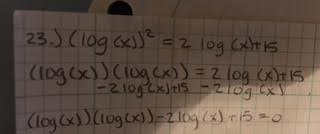 23.) (log(x))² = 2 log(x)+15
(log(x))(log(x)) = 2 log(x)+15
-2log(x)+15 -2log(x)
(log(x))(log(x))-2log(x)+15=0